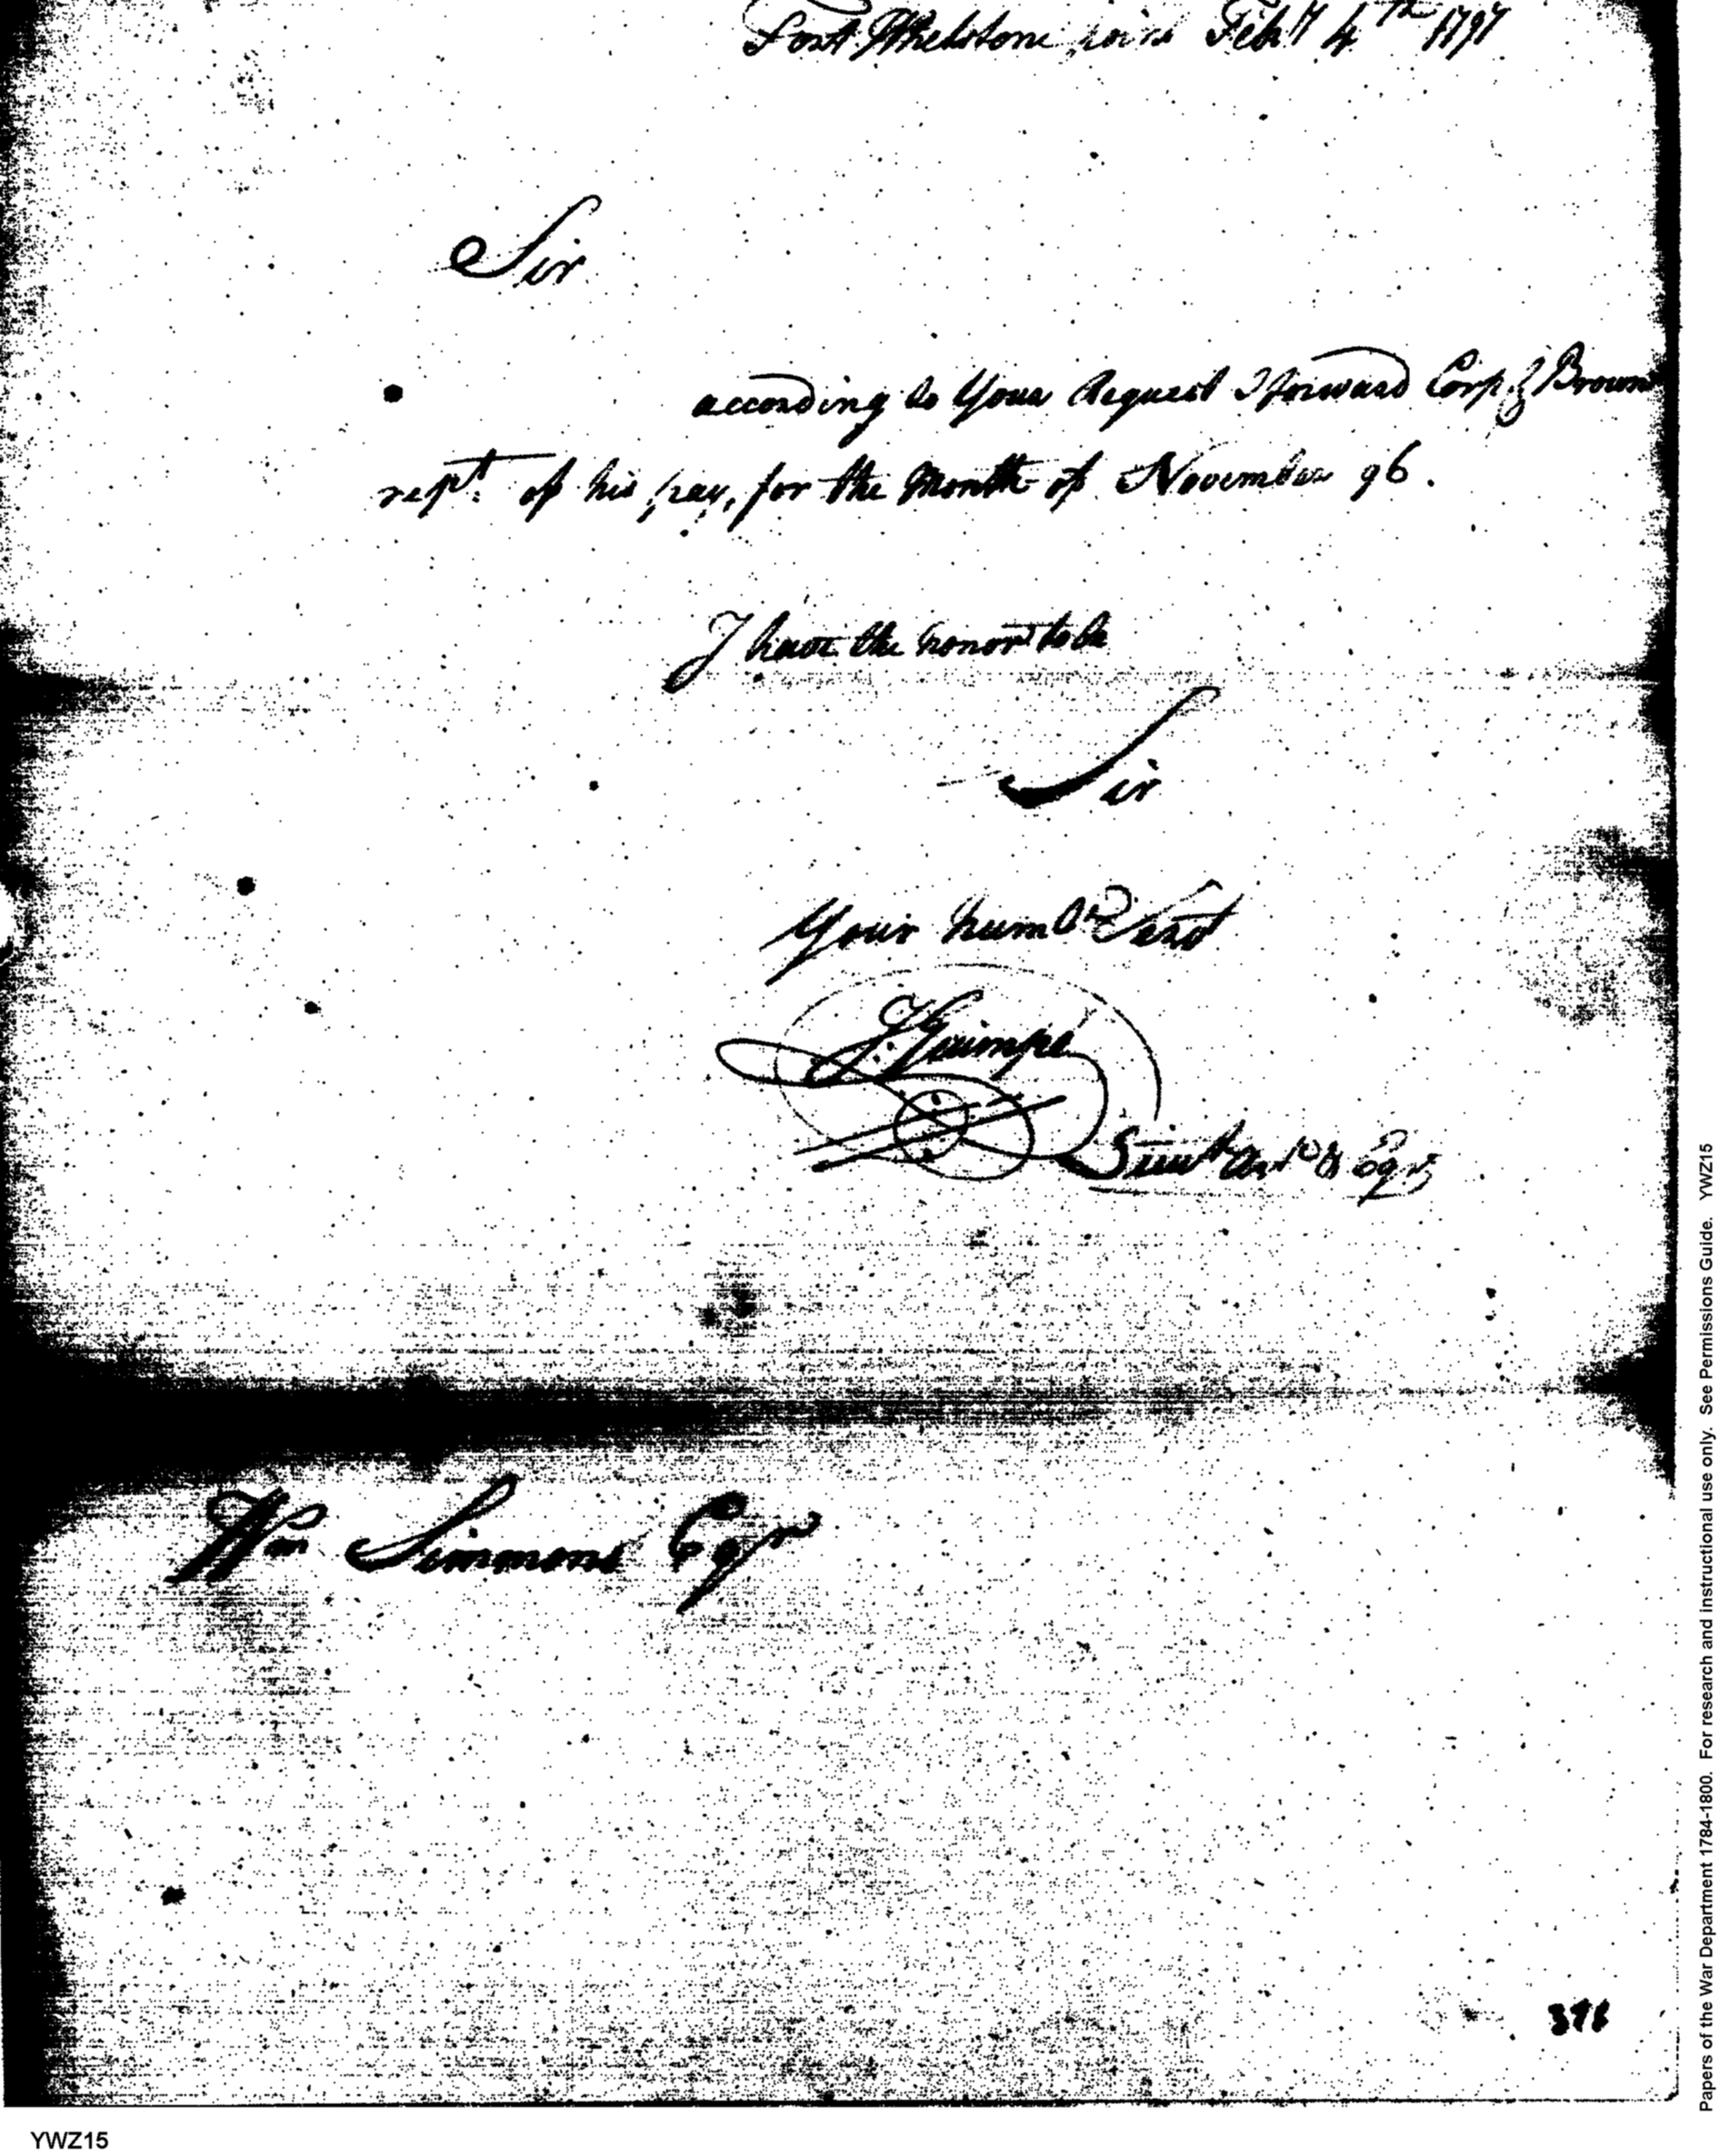 Fort Whelstone point Feb.y 4th 1797
Sir
according to Your Request I forward Corp.l Brown
rept. of his pay, for the Month of November 96.
I have the honor to be
Sir
Your humble Servt
J. Guimpe
Lieut Art & Egrs
Wm Simmons Esqr
Papers of the War Department 1784-1800. For research and instructional use only. See Permissions Guide. YWZ15
YWZ15